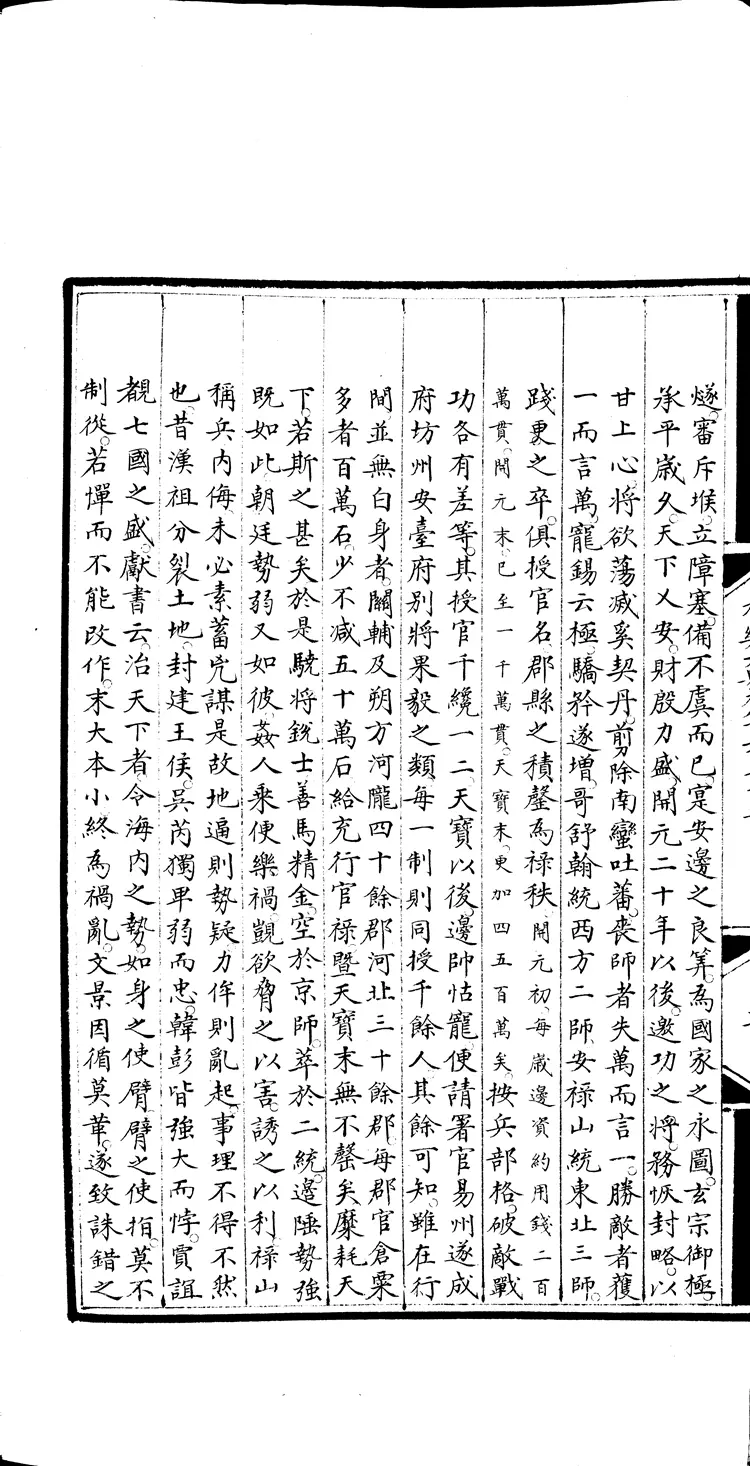 燧。審斥堠。立障塞。備不虞而已。寔安邊之良筭。為國家之永圖。玄宗御極。
承平歲久。天下乂安。財殷力盛。開元二十年以後。邀功之將。務恢封略。以
甘上心。將欲蕩滅奚契丹。剪除南蠻吐蕃。喪師者失萬而言一。勝敵者獲
一而言萬。寵錫云極。驕矜遂增。哥舒翰統西方二師。安祿山統東北三師。
踐更之卒。俱授官名。郡縣之積。罄為祿秩。開元初。每歲邊資約用錢二百
萬貫。開元末。已至一千萬貫。天寶末。更加四五百萬矣。按兵部格。破敵戰
功各有差等。其授官千纔一二。天寶以後。邊帥怙寵。便請署官易州遂成
府坊州安臺府別將果毅之類。每一制則同授千餘人。其餘可知。雖在行
間並無白身者。關輔及朔方河隴四十餘郡河北三十餘郡。每郡官倉粟
多者百萬石。少不减五十萬石給充行官祿。暨天寶末無不罄矣。糜耗天
下。若斯之甚矣於是驍將銳士善馬精金。空於京師。萃於二統。邊陲勢強
既如此。朝廷勢弱又如彼。姦人乘便樂禍。覬欲脅之以害。誘之以利。祿山
稱兵內侮。未必素蓄兇謀。是故地逼則勢疑。力侔則亂起。事理不得不然
也。昔漢祖分裂土地。封建王侯。吳芮獨卑弱而忠。韓彭皆強大而悖。賈誼
覩七國之盛。獻書云。治天下者。令海內之勢。如身之使臂。臂之使指。莫不
制從。若憚而不能改作。末大本小。終為禍亂。文景因循莫革。遂致誅錯之